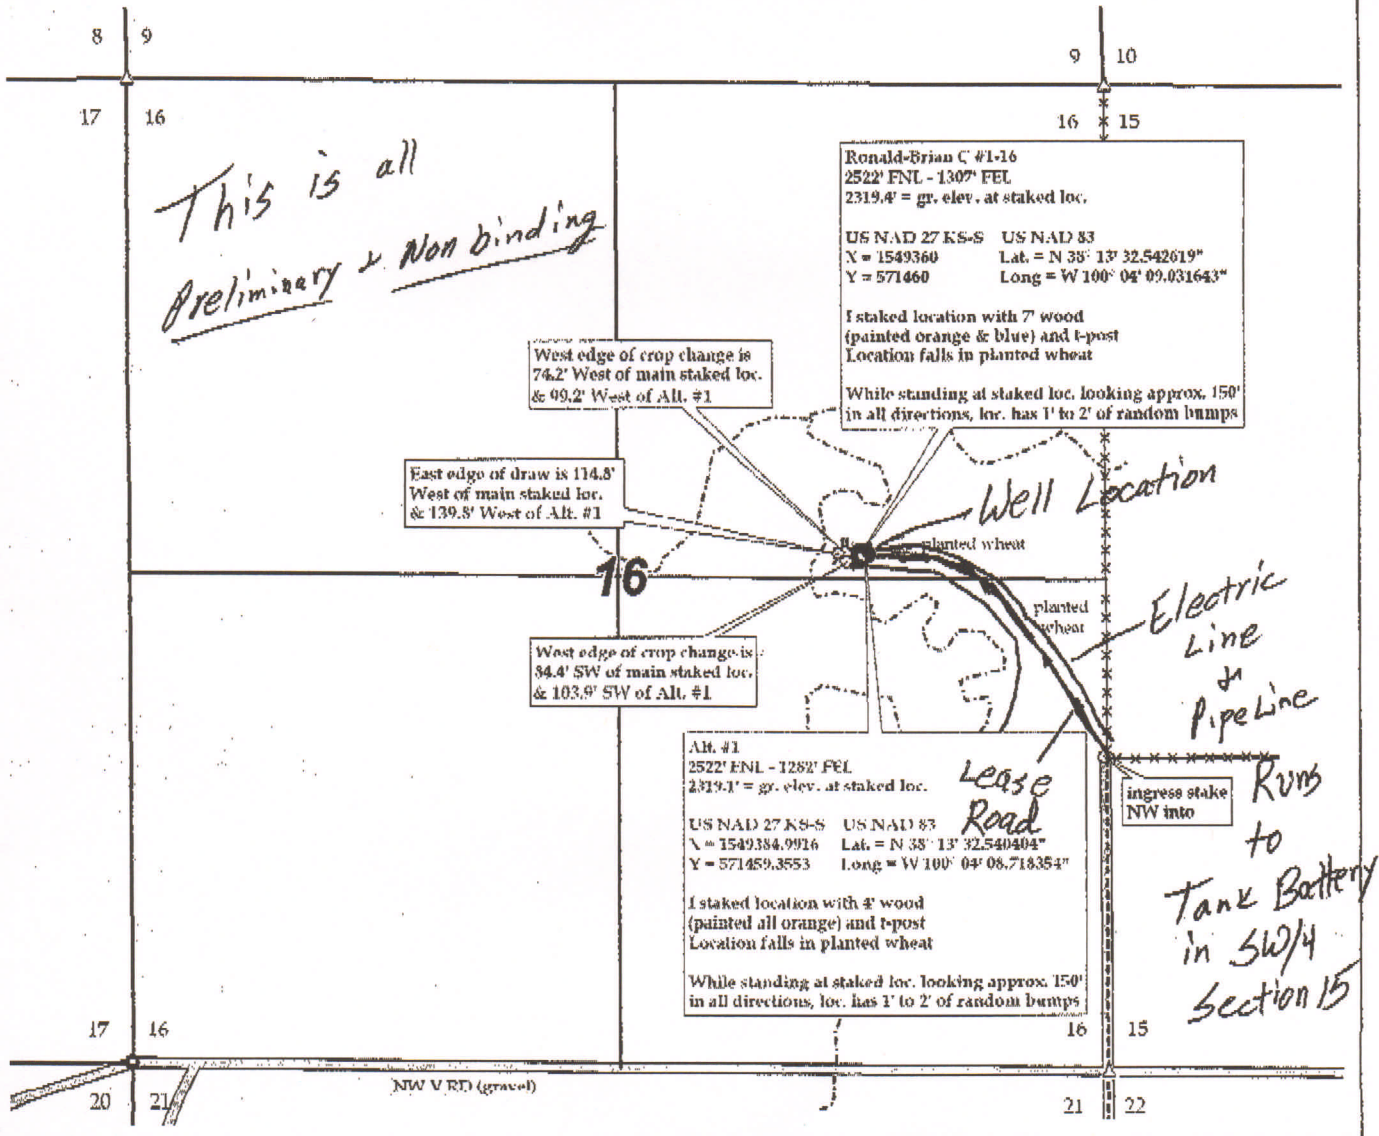 8 9
9 10
17 16
16 15
This is all
Preliminary & Non binding
Ronald-Brian C #1-16
2522' FNL - 1307' FEL
2319.4' = gr. elev. at staked loc.
US NAD 27 KS-S US NAD 83
X = 1549360 Lat. = N 38° 13' 32.542619"
Y = 571460 Long = W 100° 04' 09.031643"
I staked location with 7' wood
(painted orange & blue) and t-post
Location falls in planted wheat
While standing at staked loc. looking approx. 150'
in all directions, loc. has 1' to 2' of random bumps
West edge of crop change is
74.2' West of main staked loc.
& 99.2' West of Alt. #1
East edge of draw is 114.8'
West of main staked loc.
& 139.8' West of Alt. #1
Well Location
planted wheat
16
planted
wheat
Electric
Line
&
PipeLine
West edge of crop change is
84.4' SW of main staked loc.
& 103.9' SW of Alt. #1
Alt. #1
2522' FNL - 1282' FEL
2319.1' = gr. elev. at staked loc.
US NAD 27 KS-S US NAD 83
X = 1549384.9916 Lat. = N 38° 13' 32.540404"
Y = 571459.3553 Long = W 100° 04' 08.718354"
I staked location with 4' wood
(painted all orange) and t-post
Location falls in planted wheat
While standing at staked loc. looking approx. 150'
in all directions, loc. has 1' to 2' of random bumps
Lease
Road
ingress stake
NW into
Runs
to
Tank Battery
in SW/4
Section 15
17 16
16 15
NW V RD (gravel)
20 21
21 22